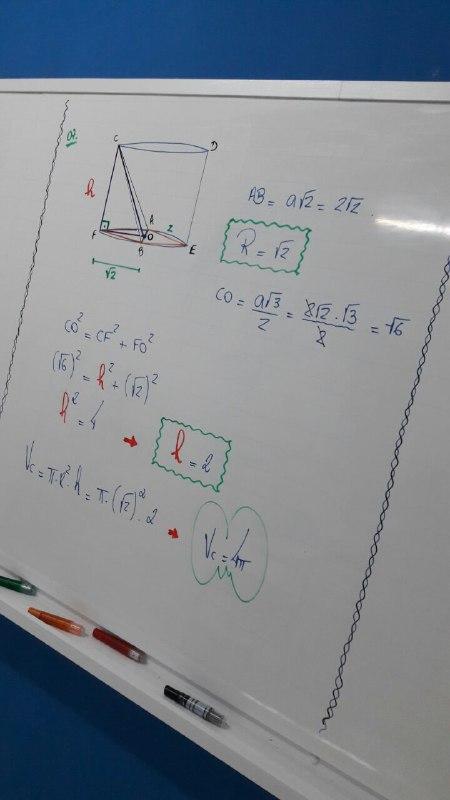 07.
C D
h
F A O 2 B E
√2
AB = a√2 = 2√2.
R = √2
CO = a√3/2 = 2√2·√3/2 = √6
CO² = CF² + FO²
(√6)² = h² + (√2)²
h² = 4 → h = 2
Vc = π·R²·h = π·(√2)²·2 → Vc = 4π